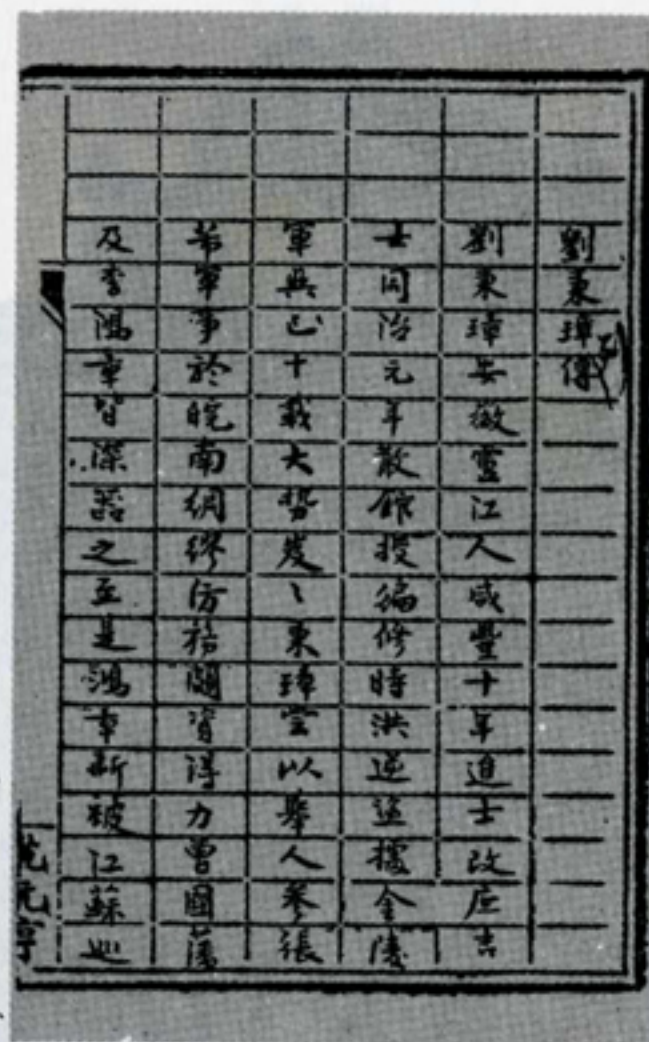 劉秉璋傳
劉秉璋安徽靈江人咸豐十年進士改庶吉
士同治元年散館授編修時洪逆盜據金陵
軍興已十載大勢岌〻秉璋嘗以舉人參張
芾軍事於皖南綢繆防務頗資得力曾國藩
及李鴻章皆深器之至是鴻章新被江蘇巡